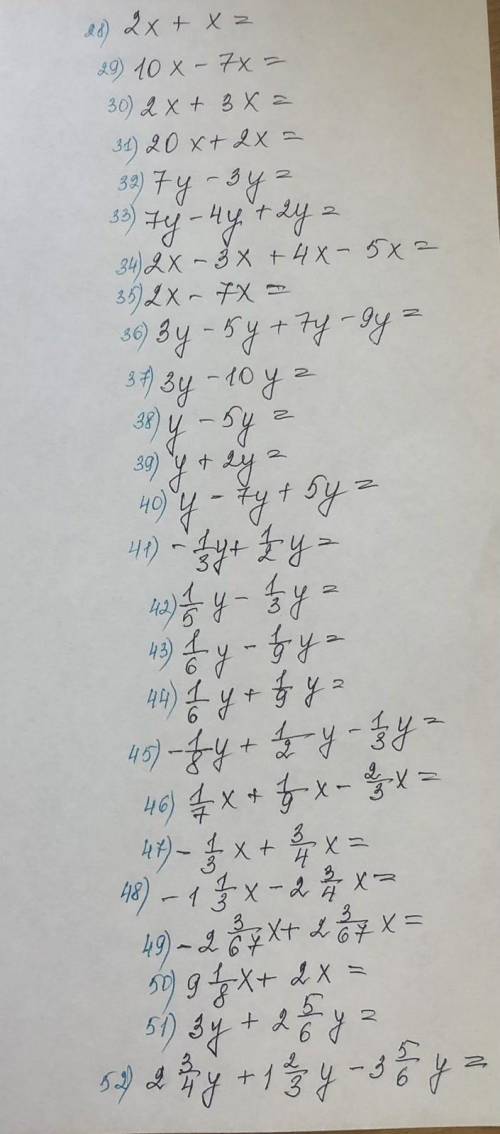 28) 2x + x =
29) 10x - 7x =
30) 2x + 3x =
31) 20x + 2x =
32) 7y - 3y =
33) 7y - 4y + 2y =
34) 2x - 3x + 4x - 5x =
35) 2x - 7x =
36) 3y - 5y + 7y - 9y =
37) 3y - 10y =
38) y - 5y =
39) y + 2y =
40) y - 7y + 5y =
41) - 1/3 y + 1/2 y =
42) 1/5 y - 1/3 y =
43) 1/6 y - 1/9 y =
44) 1/6 y + 1/9 y =
45) - 1/8 y + 1/2 y - 1/3 y =
46) 1/7 x + 1/9 x - 2/3 x =
47) - 1/3 x + 3/4 x =
48) - 1 1/3 x - 2 3/4 x =
49) - 2 3/67 x + 2 3/67 x =
50) 9 1/8 x + 2x =
51) 3y + 2 5/6 y =
52) 2 3/4 y + 1 2/3 y - 3 5/6 y =